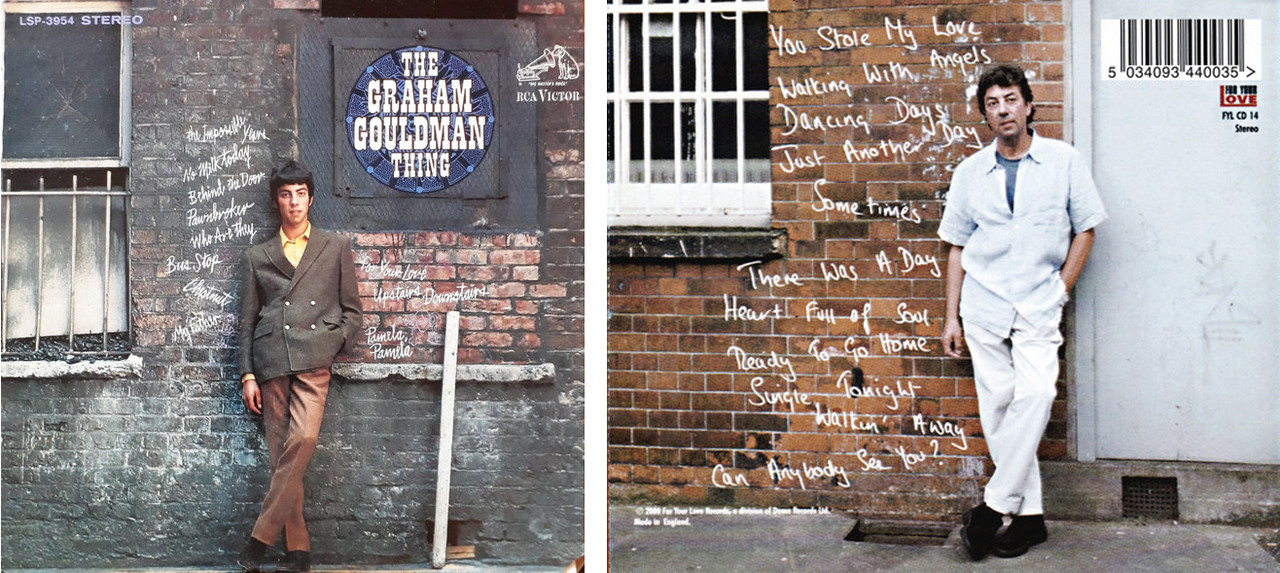 LSP-3954 STEREO
THE
GRAHAM
GOULDMAN
THING
"HIS MASTER'S VOICE"
RCA VICTOR
The Impossible
Years
No Milk Today
Behind, the Door
Pawnbroker
Who Are They
Bus Stop
Chestnut
My Father
For Your Love
Upstairs Downstairs
Pamela,
Pamela
You Stole My Love
Walking With Angels
Dancing Days
Just Another Day
Sometimes
There Was A Day
Heart Full of Soul
Ready To Go Home
Single Tonight
Walkin' Away
Can Anybody See You?
© 2000 For Your Love Records, a division of Dome Records Ltd.
Made in England.
5 034093 440035 >
FOR YOUR
LOVE
FYL CD 14
Stereo